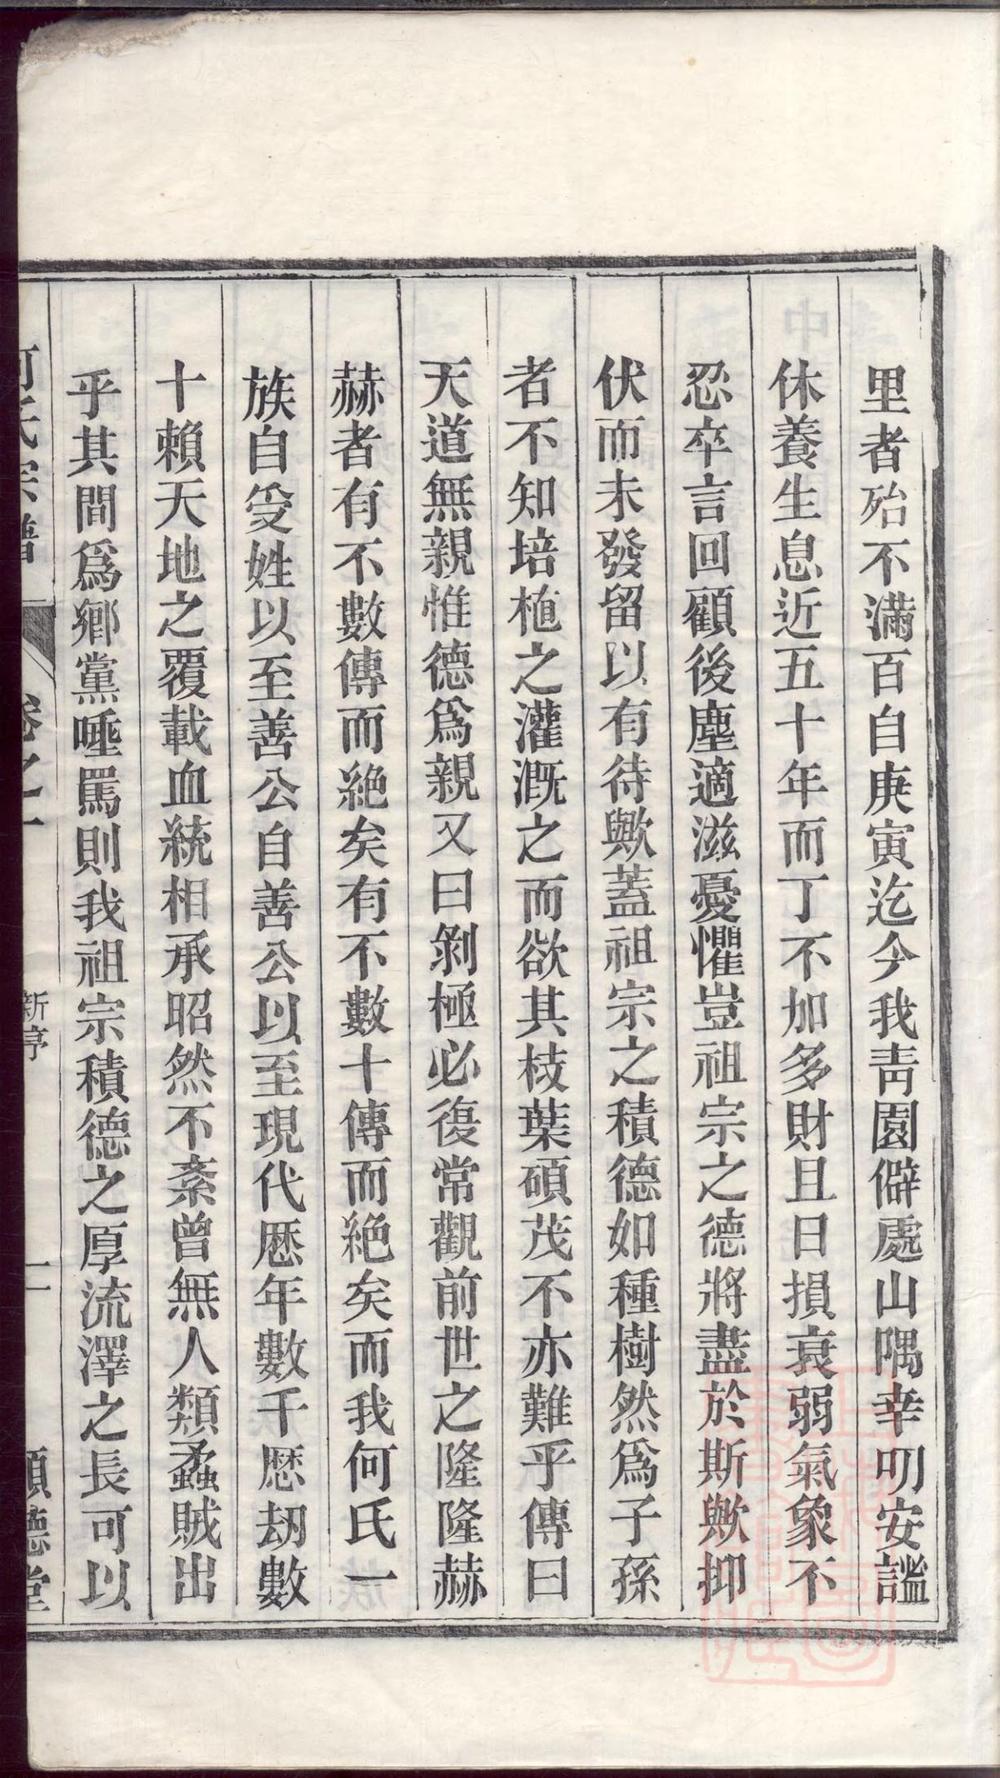 里者殆不滿百自庚寅迄今我靑園僻處山隅幸叨安謐
休養生息近五十年而丁不加多財且日損衰弱氣象不
忍卒言回顧後塵適滋憂懼豈祖宗之德將盡於斯歟抑
伏而未發留以有待歟蓋祖宗之積德如種樹然爲子孫
者不知培植之灌溉之而欲其枝葉碩茂不亦難乎傳曰
天道無親惟德爲親又曰剝極必復常觀前世之隆隆赫
赫者有不數傳而絕矣有不數十傳而絕矣而我何氏一
族自受姓以至善公自善公以至現代歷年數千歷劫數
十賴天地之覆載血統相承昭然不紊曾無人類蟊賊出
乎其間爲鄉黨唾罵則我祖宗積德之厚流澤之長可以
何氏宗譜 卷之一 新序 二 順德堂